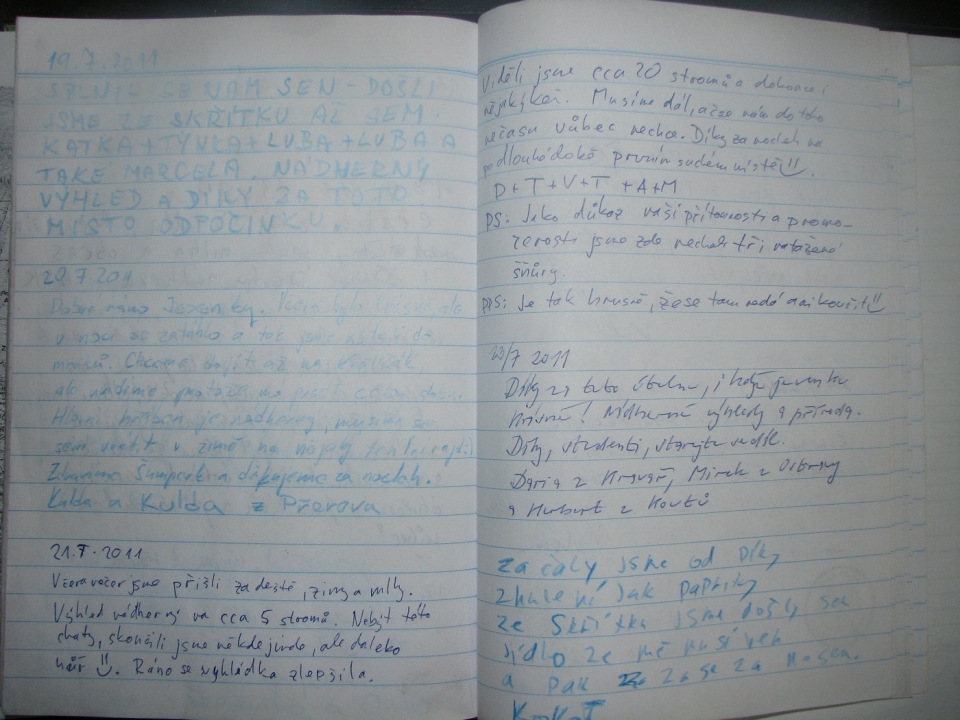 19.7.2011
SPLNIL SE NÁM SEN - DOŠLI
JSME ZE SKŘÍTKU AŽ SEM.
KATKA + TÝNKA + LUBA + LUBA A
TAKE MARCELA. NÁDMERNÝ
VÝHLED A DÍKY ZA TOTO
MÍSTO ODPOČINKU.
20.7.2011
Dobré ráno Jeseníky. byli
v noci se zatáhlo a tak jsme
mraků. Chceme dojít až na
ale uvidíme protože má pršet celý
Hlavní hřeben je nádherný, musíme se
sem vrátit v zimě na nějaký
Zdravíme Šumperk a děkujeme za nocleh.
Kulda a Kulda z Přerova
21.7.2011
Včera večer jsme přišli za deště, zimy a mlhy.
Výhled nádherný na cca 5 stromů. Nebýt této
chaty, skončili jsme někde jinde, ale daleko
hůř. Ráno se vyhlídka zlepšila.
Viděli jsme cca 20 stromů a dokonce i
nějaký keř. Musíme dál, ač se nám do toho
nečasu vůbec nechce. Díky za nocleh na
po dlouhé době prvním suchém místě.
D+T+V+T +A+M
PS: Jako důkaz vaší přítomnosti a promo-
čenosti jsme zde nechali tři natažené
šňůry.
PPS: Je tak hnusně, že se tam nedá ani kouřit
23/7 2011
Díky za tuto útulnu, i když je venku
hnusně! Nádherné výhledy a příroda.
Díky, studenti,
Daria z Hnevář, Mirek z Ostravy
a Herbert z Koutů
začaly jsme od Díky
zhulení jak Papriky
ze Skřítka jsme došly sem
jídlo ze mě
a pak ze zase za nosem.